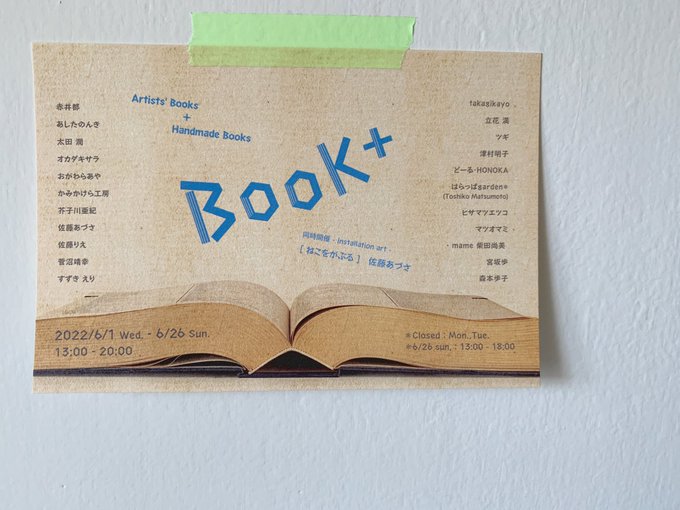 Artists' Books
+
Handmade Books
Book+
同時開催 - Installation art -
[ ねこをかぶる ] 佐藤あづさ
赤井都
あしたのんき
太田 潤
オカダキサラ
おがわらあや
かみかけら工房
芥子川亜紀
佐藤あづさ
佐藤りえ
菅沼靖幸
すずき えり
takagikayo
立花 満
ツギ
津村明子
どーる・HONOKA
はらっぱgarden*
(Toshiko Matsumoto)
ヒサマツエツコ
マツオマミ
mame 柴田尚美
宮坂歩
森本歩子
2022/6/1 Wed. - 6/26 Sun.
13:00 - 20:00
*Closed : Mon.,Tue.
*6/26 sun. : 13:00 - 18:00